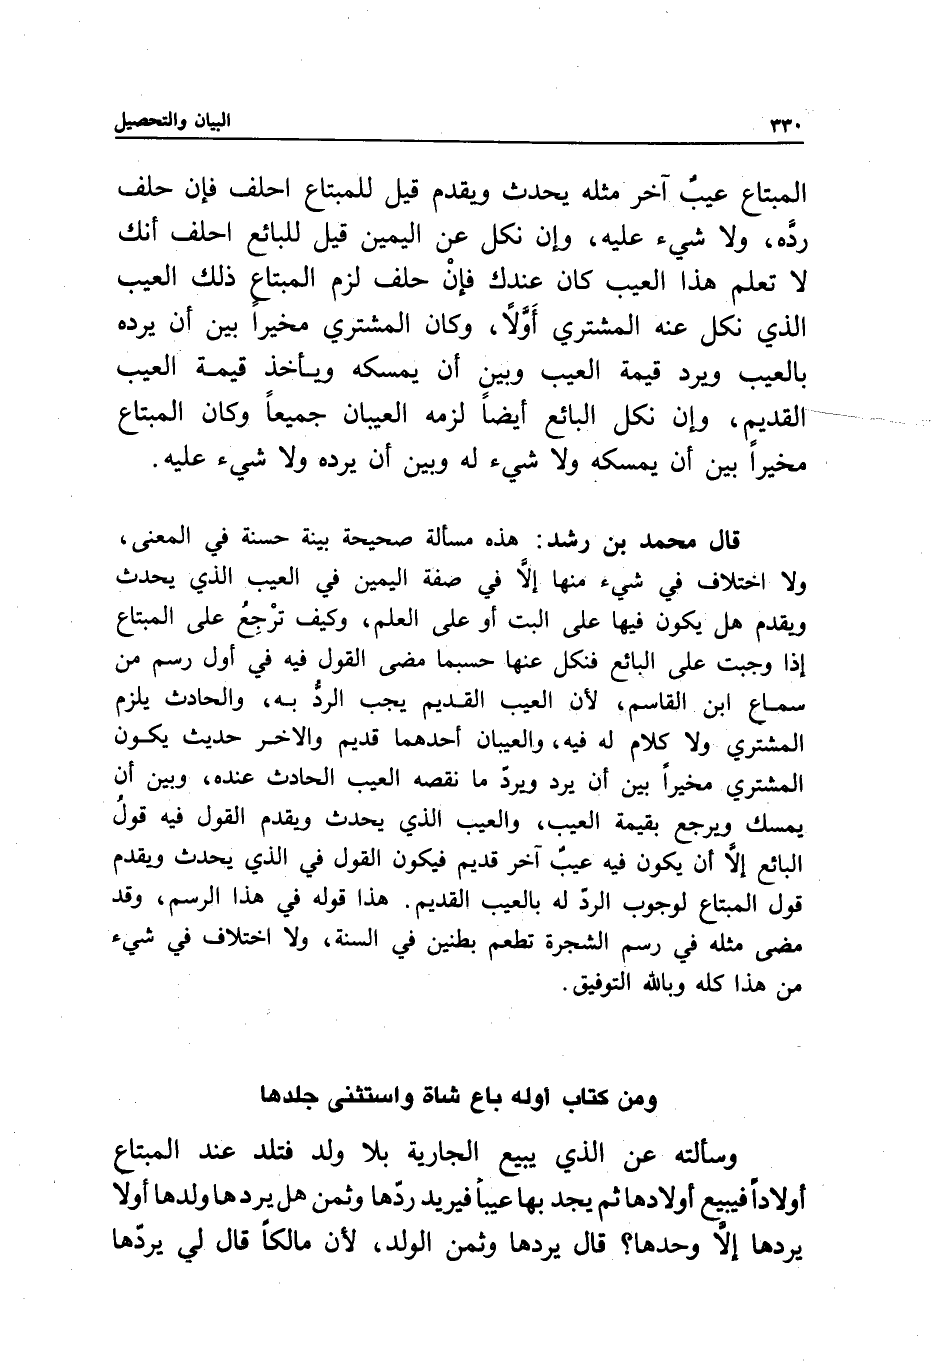 ٣٣٠
البيان والتحصيل
المبتاع عيبٌ آخر مثله يحدث ويقدم قيل للمبتاع احلف فإن حلف
ردَّه، ولا شيء عليه، وإن نكل عن اليمين قيل للبائع احلف أنك
لا تعلم هذا العيب كان عندك فإنْ حلف لزم المبتاع ذلك العيب
الذي نكل عنه المشتري أَوَّلًا، وكان المشتري مخيراً بين أن يرده
بالعيب ويرد قيمة العيب وبين أن يمسكه ويأخذ قيمة العيب
القديم، وإن نكل البائع أيضاً لزمه العيبان جميعاً وكان المبتاع
مخيراً بين أن يمسكه ولا شيء له وبين أن يرده ولا شيء عليه.
قال محمد بن رشد: هذه مسألة صحيحة بينة حسنة في المعنى،
ولا اختلاف في شيء منها إلَّا في صفة اليمين في العيب الذي يحدث
ويقدم هل يكون فيها على البت أو على العلم، وكيف ترْجِعُ على المبتاع
إذا وجبت على البائع فنكل عنها حسبما مضى القول فيه في أول رسم من
سماع ابن القاسم، لأن العيب القديم يجب الردُّ به، والحادث يلزم
المشتري ولا كلام له فيه، والعيبان أحدهما قديم والاخر حديث يكون
المشتري مخيراً بين أن يرد ويردّ ما نقصه العيب الحادث عنده، وبين أن
يمسك ويرجع بقيمة العيب، والعيب الذي يحدث ويقدم القول فيه قولُ
البائع إلَّا أن يكون فيه عيبٌ آخر قديم فيكون القول في الذي يحدث ويقدم
قول المبتاع لوجوب الردّ له بالعيب القديم. هذا قوله في هذا الرسم، وقد
مضى مثله في رسم الشجرة تطعم بطنين في السنة، ولا اختلاف في شيء
من هذا كله وبالله التوفيق.
ومن كتاب أوله باع شاة واستثنى جلدها
وسألته عن الذي يبيع الجارية بلا ولد فتلد عند المبتاع
أولاداً فيبيع أولادها ثم يجد بها عيباً فيريد ردّها وثمن هل يردها ولدها أولا
يردها إلَّا وحدها؟ قال يردها وثمن الولد، لأن مالكاً قال لي يردّها